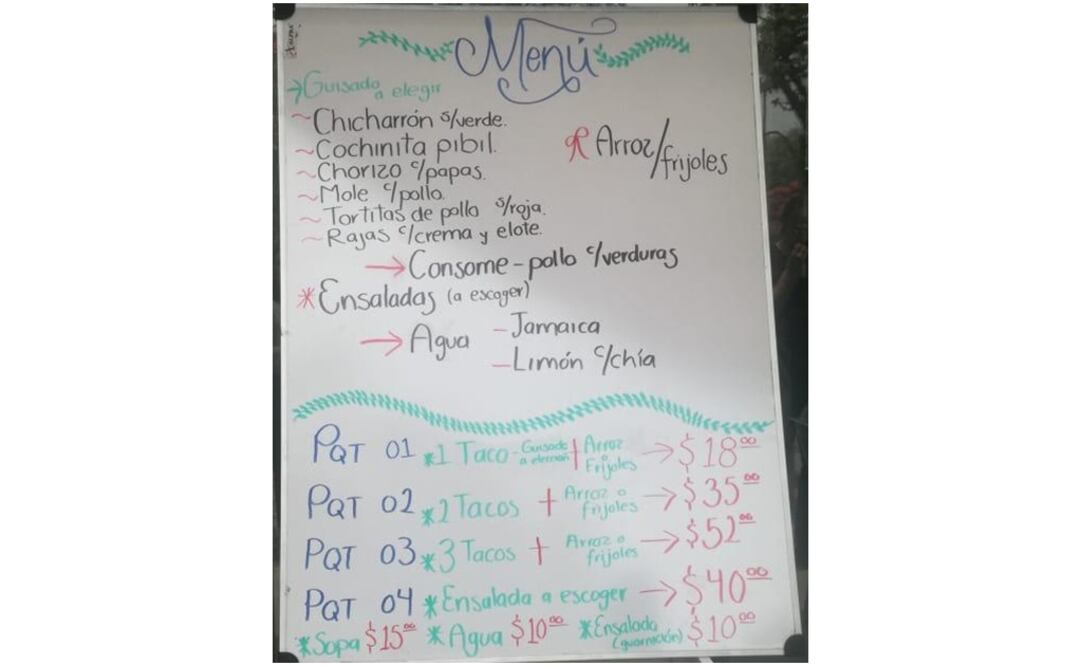 Menú
Guisado a elegir
Chicharrón s/verde.
Cochinita pibil.
Arroz/frijoles
Chorizo c/papas.
Mole c/pollo.
Tortitas de pollo s/roja.
Rajas c/crema y elote.
Consome - pollo c/verduras
*Ensaladas (a escoger)
Agua - Jamaica
- Limón c/chía
PQT 01 *1 Taco - Guisado a + Arroz o Frijoles → $18.00
PQT 02 *2 Tacos + Arroz o frijoles → $35.00
PQT 03 *3 Tacos + Arroz o frijoles → $52.00
PQT 04 *Ensalada a escoger → $40.00
*Sopa $15.00 *Agua $10.00 *Ensalada (guarnición) $10.00